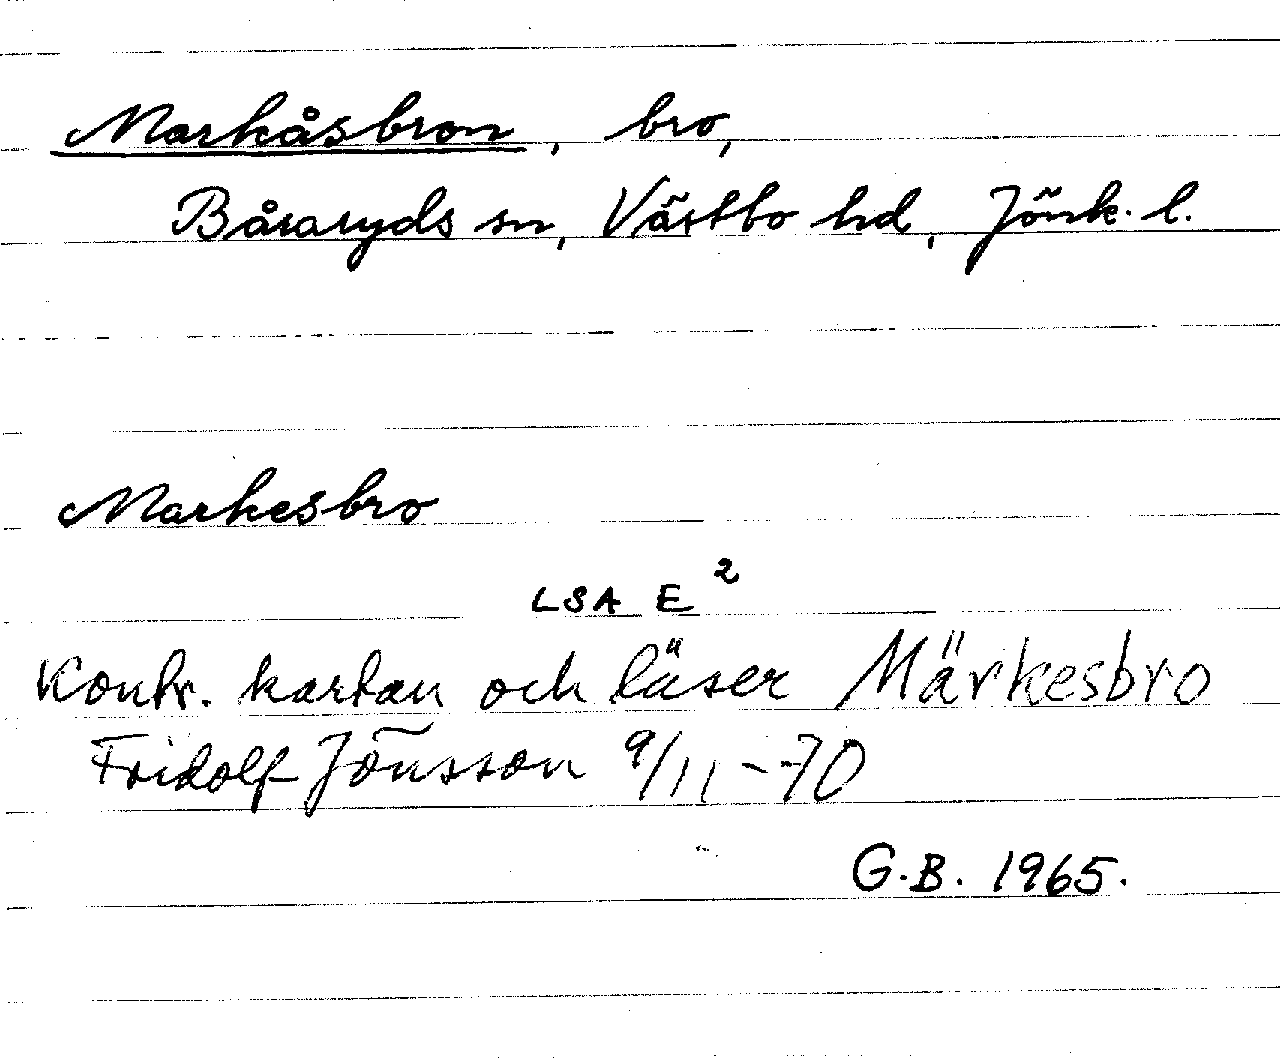 Markåsbron, bro,
Båraryds sn, Västbo hd, Jönk. l.
Markesbro
LSA E²
Kontr. kartan och läser Märkesbro
Fridolf Jönsson 9/11-70
G.B. 1965.